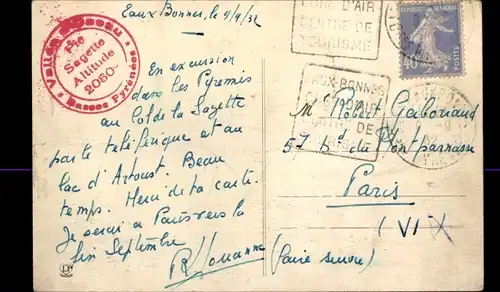 Eaux Bonnes, le 9/9/32
CURE D'AIR
CENTRE DE
TOURISME
REPUBLIQUE FRANÇAISE
Vallée d'Ossau
Pic
Sagette
Altitude
2060
Basses Pyrénées
EAUX-BONNES
DE
En excursion
dans les Pyrénées
au Col de la Sagette
par le téléférique et au
lac d'Artoust. Beau
temps. Merci de ta carte.
Je serai à Paris vers la
fin Septembre
Mr Robert Gabouaud
57 Bd du Montparnasse
Paris
(VI)
(faire suivre)